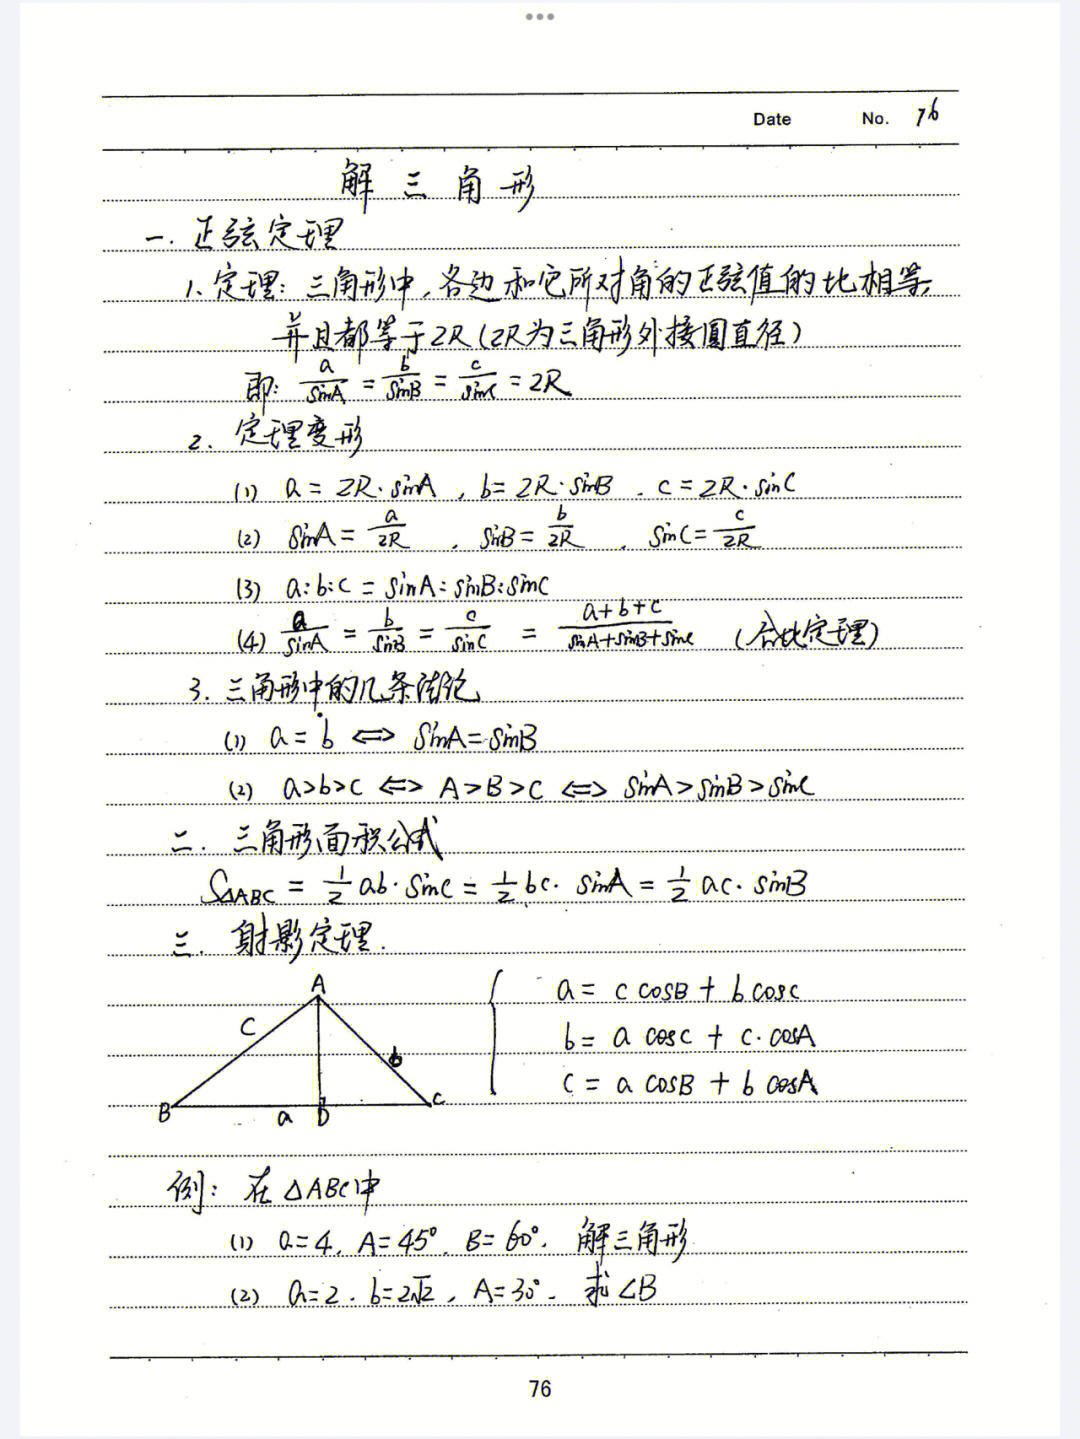 Date No. 76
解三角形
一. 正弦定理
1. 定理: 三角形中, 各边和它所对角的正弦值的比相等,
并且都等于2R (2R为三角形外接圆直径)
即: a/sinA = b/sinB = c/sinC = 2R
2. 定理变形
(1) a = 2R·sinA , b = 2R·sinB . c = 2R·sinC
(2) sinA = a/2R , sinB = b/2R , sinC = c/2R
(3) a:b:c = sinA:sinB:sinC
(4) a/sinA = b/sinB = c/sinC = a+b+c/sinA+sinB+sinC (合比定理)
3. 三角形中的几条结论
(1) a = b ⟺ sinA = sinB
(2) a>b>c ⟺ A>B>C ⟺ sinA>sinB>sinC
二. 三角形面积公式
S△ABC = 1/2 ab·sinC = 1/2 bc·sinA = 1/2 ac·sinB
三. 射影定理.
A
c
b
B
a
D
C
a = c cosB + b cosC
b = a cosC + c·cosA
c = a cosB + b cosA
例: 在△ABC中
(1) a=4, A=45°, B=60°. 解三角形
(2) a=2. b=2√2, A=30°. 求∠B
76